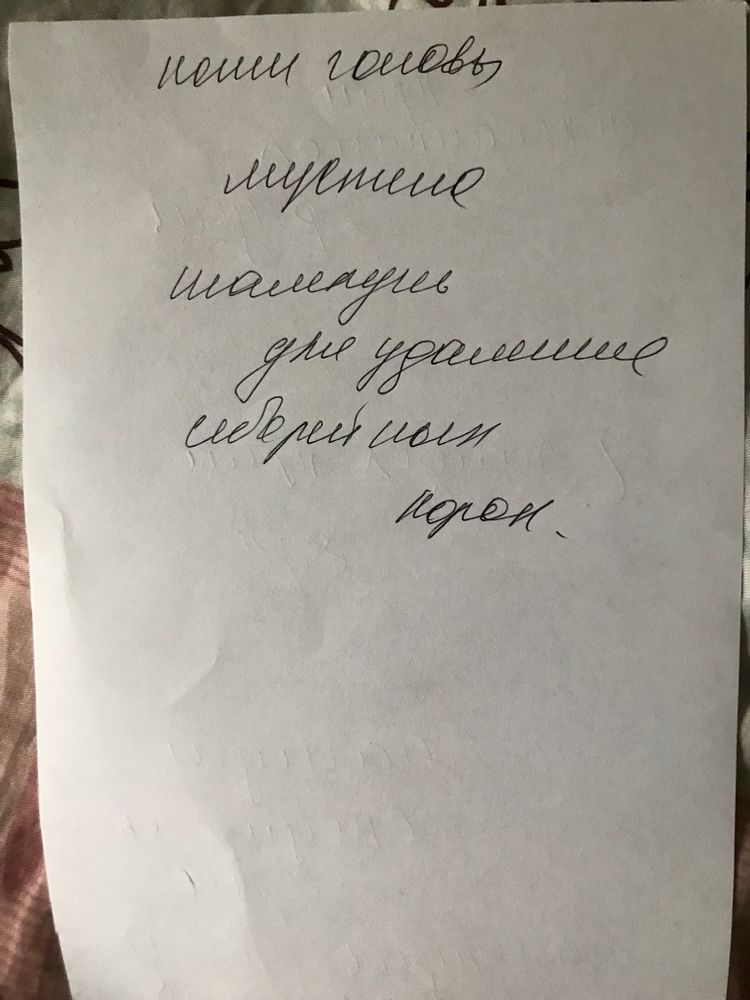 кожи головы
мустела
шампунь
для удаления
себорейных
корок.